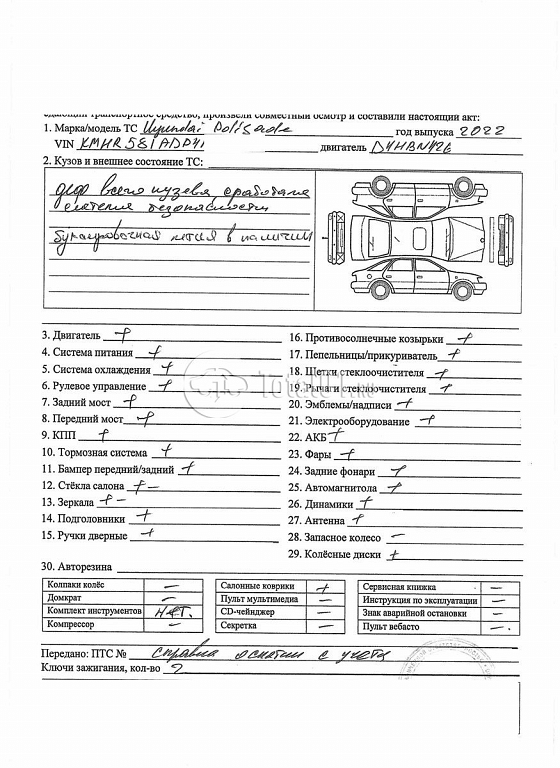 едающий транспортное средство, произвели совместный осмотр и составили настоящий акт:
1. Марка/модель ТС Hyundai Palisade год выпуска 2022
VIN KMHR581ADP4 двигатель D4HBN426
2. Кузов и внешнее состояние ТС:
деф всего кузова, сработана
система безопасности
буксировочная петля в наличии
3. Двигатель +
4. Система питания +
5. Система охлаждения +
6. Рулевое управление +
7. Задний мост +
8. Передний мост +
9. КПП +
10. Тормозная система +
11. Бампер передний/задний +
12. Стёкла салона + –
13. Зеркала + –
14. Подголовники +
15. Ручки дверные +
16. Противосолнечные козырьки +
17. Пепельницы/прикуриватель +
18. Щетки стеклоочистителя +
19. Рычаги стеклоочистителя +
20. Эмблемы/надписи +
21. Электрооборудование +
22. АКБ +
23. Фары +
24. Задние фонари +
25. Автомагнитола +
26. Динамики +
27. Антенна +
28. Запасное колесо –
29. Колёсные диски +
30. Авторезина
Колпаки колёс –
Домкрат –
Комплект инструментов нет.
Компрессор –
Салонные коврики +
Пульт мультимедиа –
CD-чейнджер –
Секретка –
Сервисная книжка –
Инструкция по эксплуатации –
Знак аварийной остановки –
Пульт вебасто –
Передано: ПТС № справка о снятии с учета
Ключи зажигания, кол-во 2